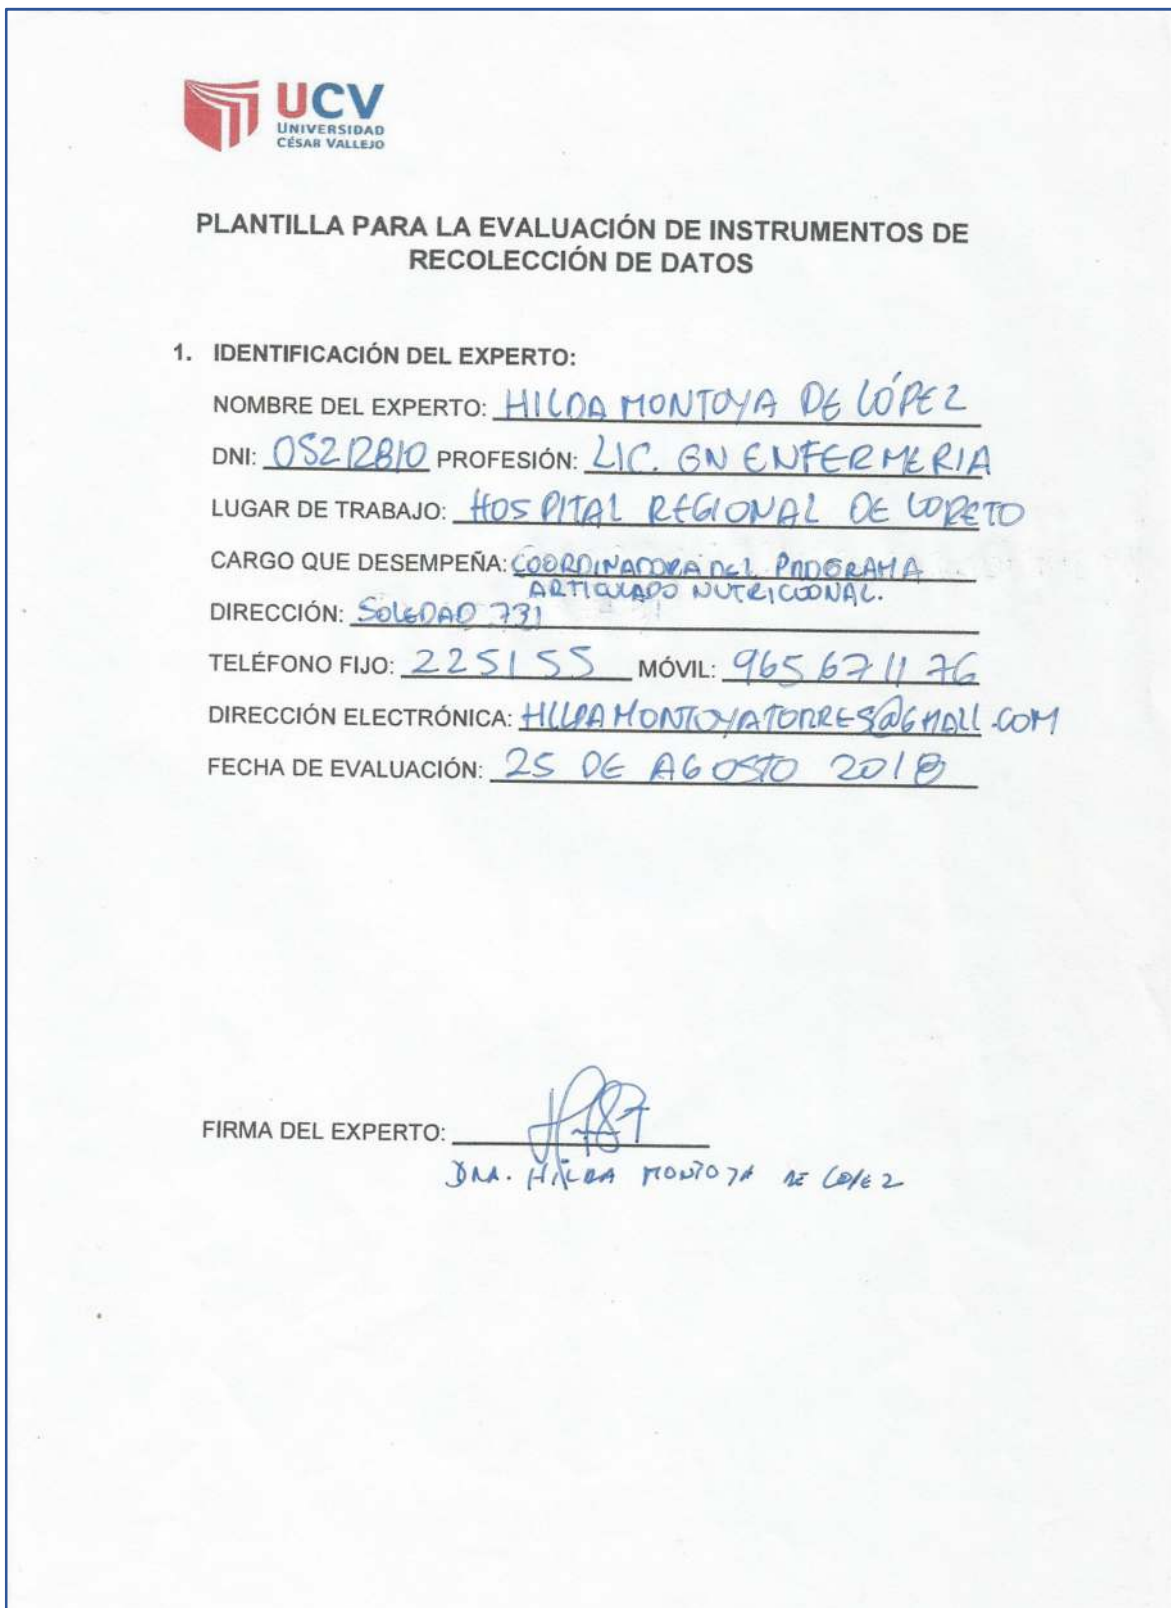 UCV
UNIVERSIDAD
CÉSAR VALLEJO
PLANTILLA PARA LA EVALUACIÓN DE INSTRUMENTOS DE
RECOLECCIÓN DE DATOS
1. IDENTIFICACIÓN DEL EXPERTO:
NOMBRE DEL EXPERTO: HILDA MONTOYA DE LÓPEZ
DNI: 05212810 PROFESIÓN: LIC. EN ENFERMERIA
LUGAR DE TRABAJO: HOSPITAL REGIONAL DE LORETO
CARGO QUE DESEMPEÑA: COORDINADORA DEL PROGRAMA
ARTICULADO NUTRICIONAL.
DIRECCIÓN: SOLEDAD 731
TELÉFONO FIJO: 225155 MÓVIL: 965671176
DIRECCIÓN ELECTRÓNICA: HILDAMONTOYATORRES@GMAIL.COM
FECHA DE EVALUACIÓN: 25 DE AGOSTO 2018
FIRMA DEL EXPERTO:
DRA. HILDA MONTOYA DE LOPEZ